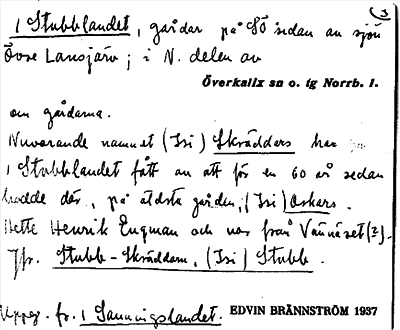 (3)
1 Stubblandet, gårdar på SÖ sidan av sjön
Övre Lansjärv; i N. delen av
Överkalix sn o. tg Norrb. l.
om gårdarna.
Nuvarande namnet (Isi) Skräddars har
1 Stubblandet fått av att för en 60 år sedan
bodde där, på äldsta gården, (Isi) Oskars.
Hette Henrik Engman och var från Vännäset (?).
Jfr. Stubb-Skräddarn, (Isi) Stubb.
Uppg. fr. 1 Sanningslandet. EDVIN BRÄNNSTRÖM 1937